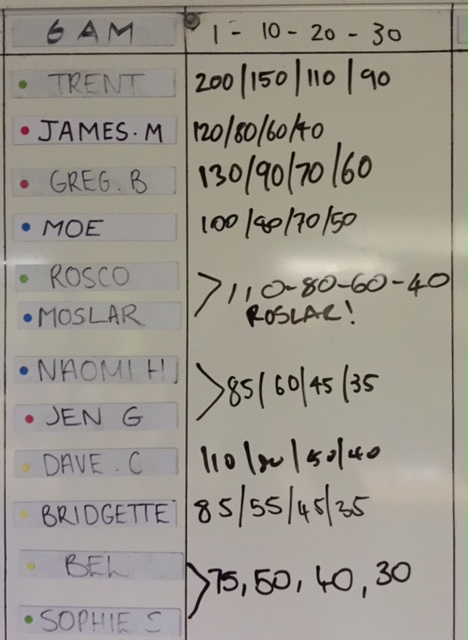 6 AM 1 - 10 - 20 - 30
TRENT 200/150/110/90
JAMES. M 120/80/60/40
GREG. B 130/90/70/60
MOE 100/80/70/50
ROSCO
110-80-60-40
MOSLAR
ROSLAR!
NAOMI H
85/60/45/35
JEN G
DAVE. C 110/80/50/40
BRIDGETTE 85/55/45/35
BEL
75, 50, 40, 30
SOPHIE S